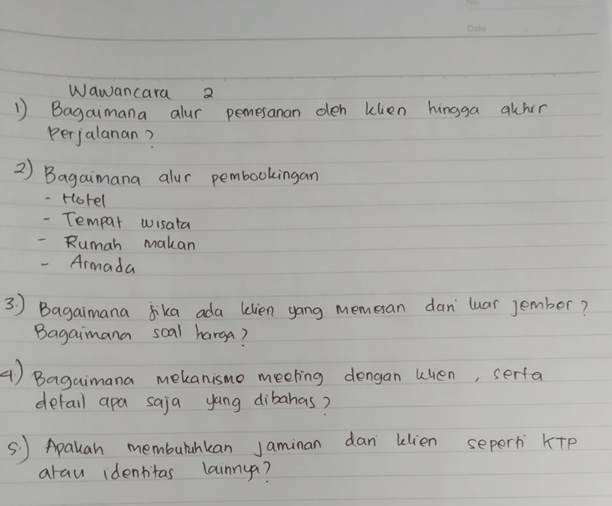 Date
Wawancara 2
1) Bagaimana alur pemesanan oleh klien hingga akhir
Perjalanan?
2) Bagaimana alur pembookingan
- Hotel
- Tempat wisata
- Rumah makan
- Armada
3.) Bagaimana jika ada klien yang memesan dari luar jember?
Bagaimana soal harga?
4) Bagaimana mekanismo meeting dengan klien, serta
detail apa saja yang dibahas?
5.) Apakah membutuhkan jaminan dari klien seperti KTP
atau identitas lainnya?